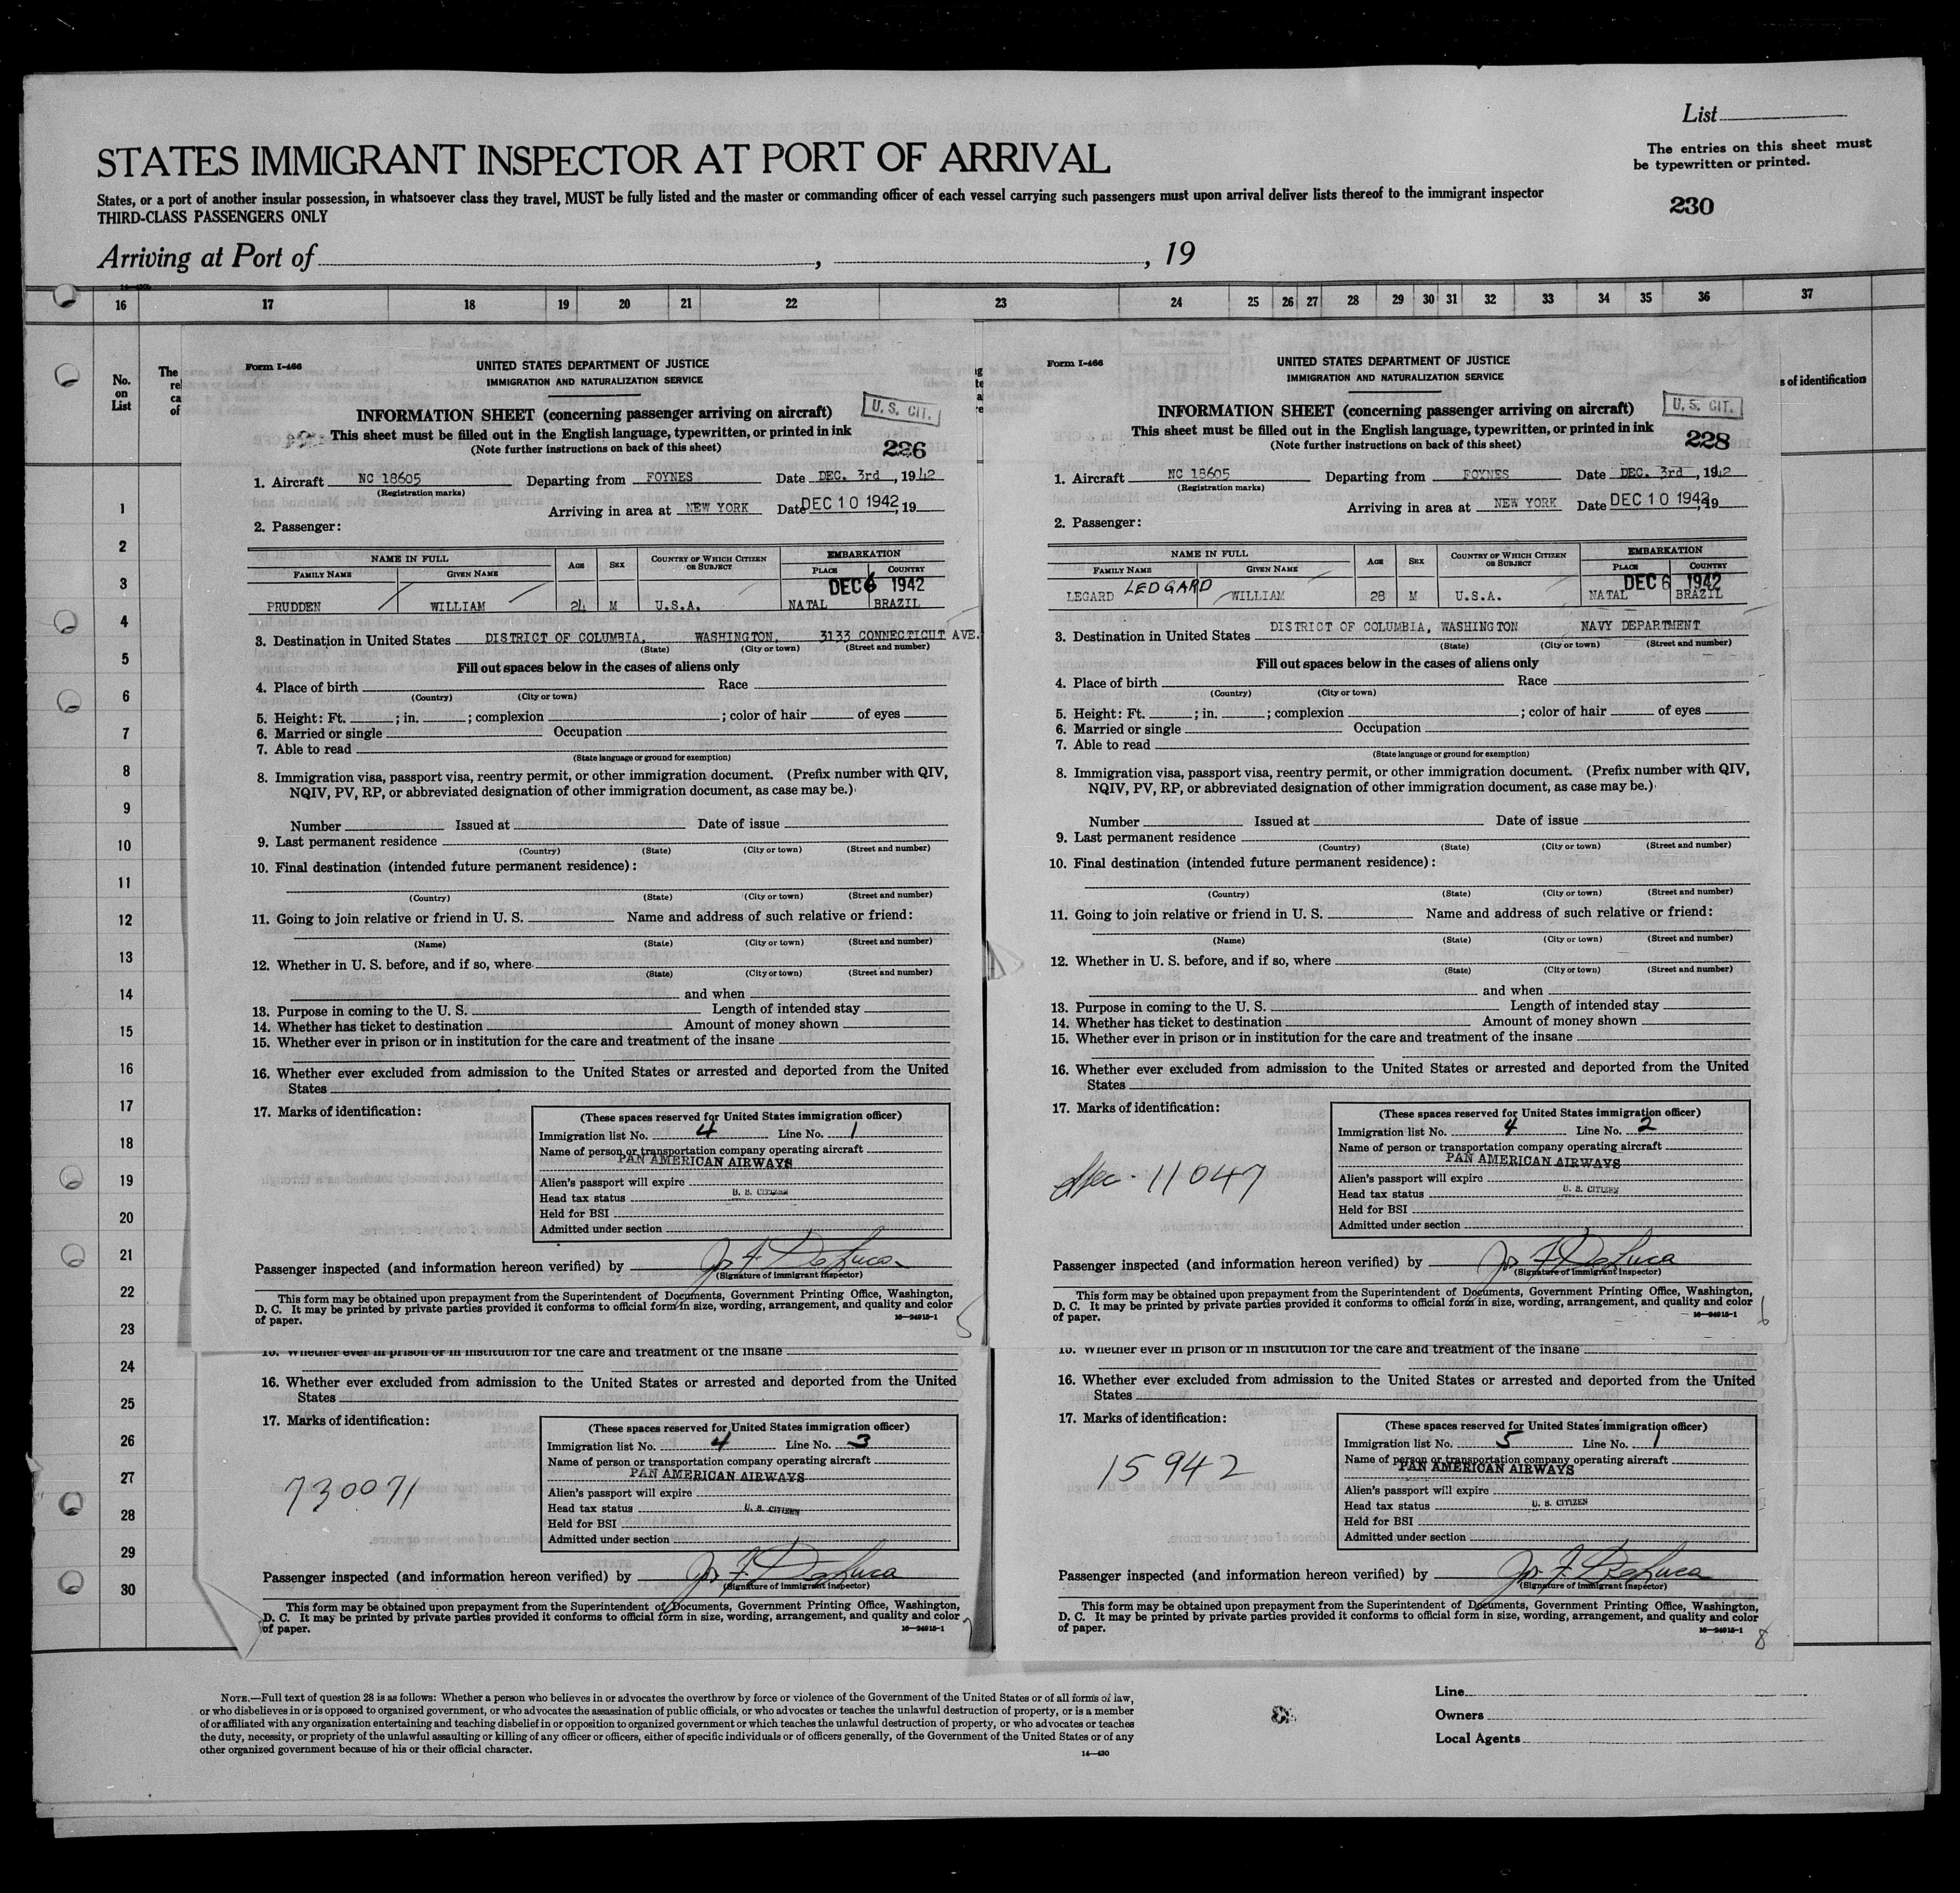 List
STATES IMMIGRANT INSPECTOR AT PORT OF ARRIVAL
The entries on this sheet must
be typewritten or printed.
States, or a port of another insular possession, in whatsoever class they travel, MUST be fully listed and the master or commanding officer of each vessel carrying such passengers must upon arrival deliver lists thereof to the immigrant inspector
THIRD-CLASS PASSENGERS ONLY
230
Arriving at Port of , , 19
16 17 18 19 20 21 22 23 24 25 26 27 28 29 30 31 32 33 34 35 36 37
No.
on
List
The
re
ca
of
s of identification
1
2
3
4
5
6
7
8
9
10
11
12
13
14
15
16
17
18
19
20
21
22
23
24
25
26
27
28
29
30
Form I-466
UNITED STATES DEPARTMENT OF JUSTICE
IMMIGRATION AND NATURALIZATION SERVICE
INFORMATION SHEET (concerning passenger arriving on aircraft)
U. S. CIT.
This sheet must be filled out in the English language, typewritten, or printed in ink
(Note further instructions on back of this sheet)
226
1. Aircraft NC 18605 Departing from FOYNES Date DEC. 3rd, 1942
(Registration marks)
Arriving in area at NEW YORK Date DEC 10 1942, 19
2. Passenger:
NAME IN FULL AGE SEX COUNTRY OF WHICH CITIZEN OR SUBJECT EMBARKATION
FAMILY NAME GIVEN NAME PLACE COUNTRY
DEC 6 1942
PRUDDEN WILLIAM 24 M U.S.A. NATAL BRAZIL
3. Destination in United States DISTRICT OF COLUMBIA, WASHINGTON, 3133 CONNECTICUT AVE.
(State) (City or town) (Street and number)
Fill out spaces below in the cases of aliens only
4. Place of birth Race
(Country) (City or town)
5. Height: Ft. ; in. ; complexion ; color of hair of eyes
6. Married or single Occupation
7. Able to read
(State language or ground for exemption)
8. Immigration visa, passport visa, reentry permit, or other immigration document. (Prefix number with QIV,
NQIV, PV, RP, or abbreviated designation of other immigration document, as case may be.)
Number Issued at Date of issue
9. Last permanent residence
(Country) (State) (City or town) (Street and number)
10. Final destination (intended future permanent residence):
(Country) (State) (City or town) (Street and number)
11. Going to join relative or friend in U. S. Name and address of such relative or friend:
(Name) (State) (City or town) (Street and number)
12. Whether in U. S. before, and if so, where
(State) (City or town) (Street and number)
and when
13. Purpose in coming to the U. S. Length of intended stay
14. Whether has ticket to destination Amount of money shown
15. Whether ever in prison or in institution for the care and treatment of the insane
16. Whether ever excluded from admission to the United States or arrested and deported from the United
States
17. Marks of identification:
(These spaces reserved for United States immigration officer)
Immigration list No. 4 Line No. 1
Name of person or transportation company operating aircraft
PAN AMERICAN AIRWAYS
Alien's passport will expire
Head tax status U. S. CITIZEN
Held for BSI
Admitted under section
Passenger inspected (and information hereon verified) by Jos F. DeLuca
(Signature of immigrant inspector)
This form may be obtained upon prepayment from the Superintendent of Documents, Government Printing Office, Washington,
D. C. It may be printed by private parties provided it conforms to official form in size, wording, arrangement, and quality and color
of paper.
16—24915-1
5
Form I-466
UNITED STATES DEPARTMENT OF JUSTICE
IMMIGRATION AND NATURALIZATION SERVICE
INFORMATION SHEET (concerning passenger arriving on aircraft)
U. S. CIT.
This sheet must be filled out in the English language, typewritten, or printed in ink
(Note further instructions on back of this sheet)
228
1. Aircraft NC 18605 Departing from FOYNES Date DEC. 3rd, 1942
(Registration marks)
Arriving in area at NEW YORK Date DEC 10 1942, 19
2. Passenger:
NAME IN FULL AGE SEX COUNTRY OF WHICH CITIZEN OR SUBJECT EMBARKATION
FAMILY NAME GIVEN NAME PLACE COUNTRY
LEDGARD DEC 6 1942
LEGARD WILLIAM 28 M U.S.A. NATAL BRAZIL
DISTRICT OF COLUMBIA, WASHINGTON NAVY DEPARTMENT
3. Destination in United States
(State) (City or town) (Street and number)
Fill out spaces below in the cases of aliens only
4. Place of birth Race
(Country) (City or town)
5. Height: Ft. ; in. ; complexion ; color of hair of eyes
6. Married or single Occupation
7. Able to read
(State language or ground for exemption)
8. Immigration visa, passport visa, reentry permit, or other immigration document. (Prefix number with QIV,
NQIV, PV, RP, or abbreviated designation of other immigration document, as case may be.)
Number Issued at Date of issue
9. Last permanent residence
(Country) (State) (City or town) (Street and number)
10. Final destination (intended future permanent residence):
(Country) (State) (City or town) (Street and number)
11. Going to join relative or friend in U. S. Name and address of such relative or friend:
(Name) (State) (City or town) (Street and number)
12. Whether in U. S. before, and if so, where
(State) (City or town) (Street and number)
and when
13. Purpose in coming to the U. S. Length of intended stay
14. Whether has ticket to destination Amount of money shown
15. Whether ever in prison or in institution for the care and treatment of the insane
16. Whether ever excluded from admission to the United States or arrested and deported from the United
States
17. Marks of identification:
11047
(These spaces reserved for United States immigration officer)
Immigration list No. 4 Line No. 2
Name of person or transportation company operating aircraft
PAN AMERICAN AIRWAYS
Alien's passport will expire
Head tax status U. S. CITIZEN
Held for BSI
Admitted under section
Passenger inspected (and information hereon verified) by Jos F DeLuca
(Signature of immigrant inspector)
This form may be obtained upon prepayment from the Superintendent of Documents, Government Printing Office, Washington,
D. C. It may be printed by private parties provided it conforms to official form in size, wording, arrangement, and quality and color
of paper.
16—24915-1
6
15. Whether ever in prison or in institution for the care and treatment of the insane
16. Whether ever excluded from admission to the United States or arrested and deported from the United
States
17. Marks of identification:
730071
(These spaces reserved for United States immigration officer)
Immigration list No. 4 Line No. 3
Name of person or transportation company operating aircraft
PAN AMERICAN AIRWAYS
Alien's passport will expire
Head tax status U. S. CITIZEN
Held for BSI
Admitted under section
Passenger inspected (and information hereon verified) by Jos F. DeLuca
(Signature of immigrant inspector)
This form may be obtained upon prepayment from the Superintendent of Documents, Government Printing Office, Washington,
D. C. It may be printed by private parties provided it conforms to official form in size, wording, arrangement, and quality and color
of paper.
16—24915-1
7
15. Whether ever in prison or in institution for the care and treatment of the insane
16. Whether ever excluded from admission to the United States or arrested and deported from the United
States
17. Marks of identification:
15942
(These spaces reserved for United States immigration officer)
Immigration list No. 5 Line No. 1
Name of person or transportation company operating aircraft
PAN AMERICAN AIRWAYS
Alien's passport will expire
Head tax status U. S. CITIZEN
Held for BSI
Admitted under section
Passenger inspected (and information hereon verified) by Jos. F. DeLuca
(Signature of immigrant inspector)
This form may be obtained upon prepayment from the Superintendent of Documents, Government Printing Office, Washington,
D. C. It may be printed by private parties provided it conforms to official form in size, wording, arrangement, and quality and color
of paper.
16—24915-1
8
NOTE.—Full text of question 28 is as follows: Whether a person who believes in or advocates the overthrow by force or violence of the Government of the United States or of all forms of law,
or who disbelieves in or is opposed to organized government, or who advocates the assassination of public officials, or who advocates or teaches the unlawful destruction of property, or is a member
of or affiliated with any organization entertaining and teaching disbelief in or opposition to organized government or which teaches the unlawful destruction of property, or who advocates or teaches
the duty, necessity, or propriety of the unlawful assaulting or killing of any officer or officers, either of specific individuals or of officers generally, of the Government of the United States or of any
other organized government because of his or their official character.
14—430
Line
Owners
Local Agents